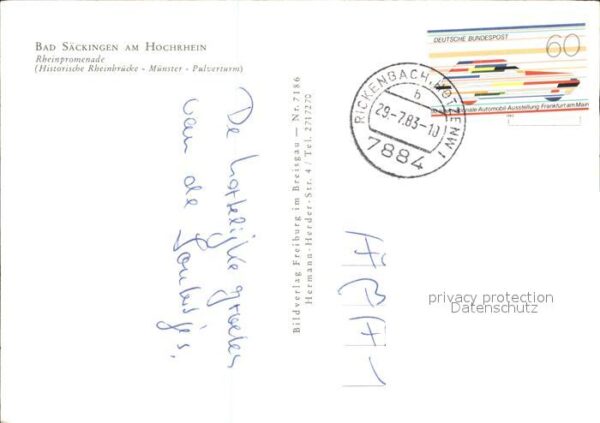 BAD SÄCKINGEN AM HOCHRHEIN
Rheinpromenade
(Historische Rheinbrücke - Münster - Pulverturm)
DEUTSCHE BUNDESPOST
60
nationale Automobil-Ausstellung Frankfurt am Main
RICKENBACH, HOTZENW 1
b
29-7.83-10
7884
De hartelijke groeten
van de
Bildverlag Freiburg im Breisgau — Nr. 7186
Hermann-Herder-Str. 4 / Tel. 2717270
privacy protection
Datenschutz